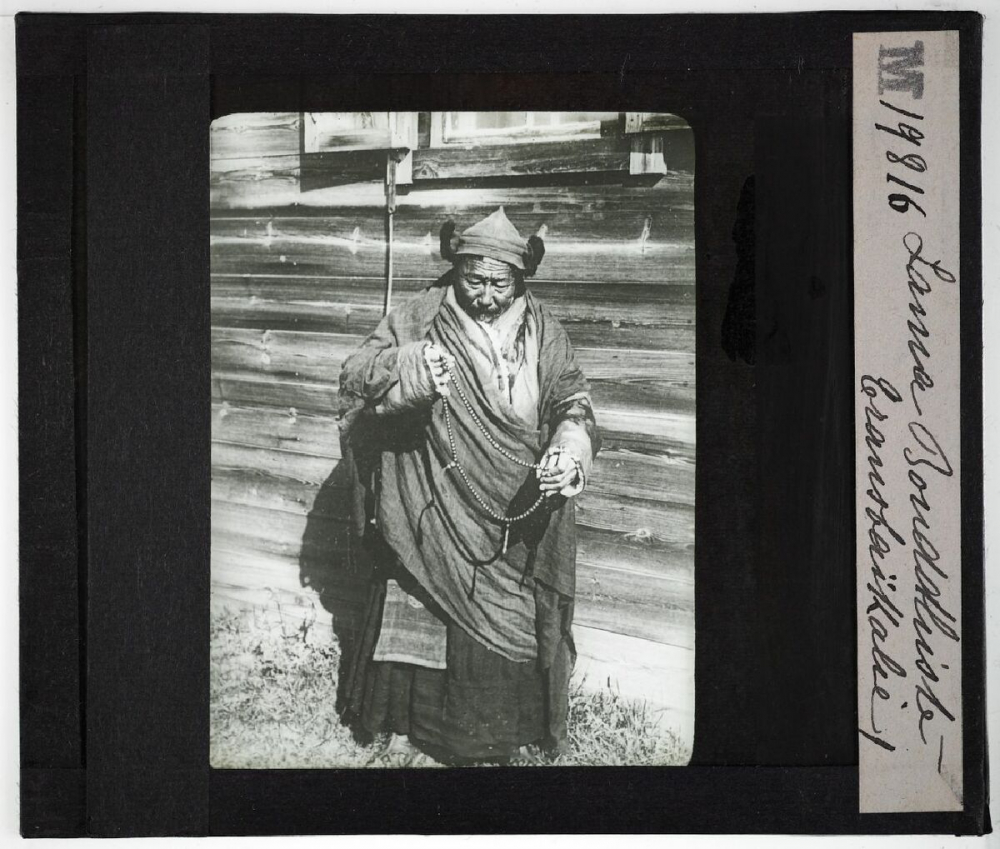 M 19816 Lama Bouddhiste
Transbaïkalie